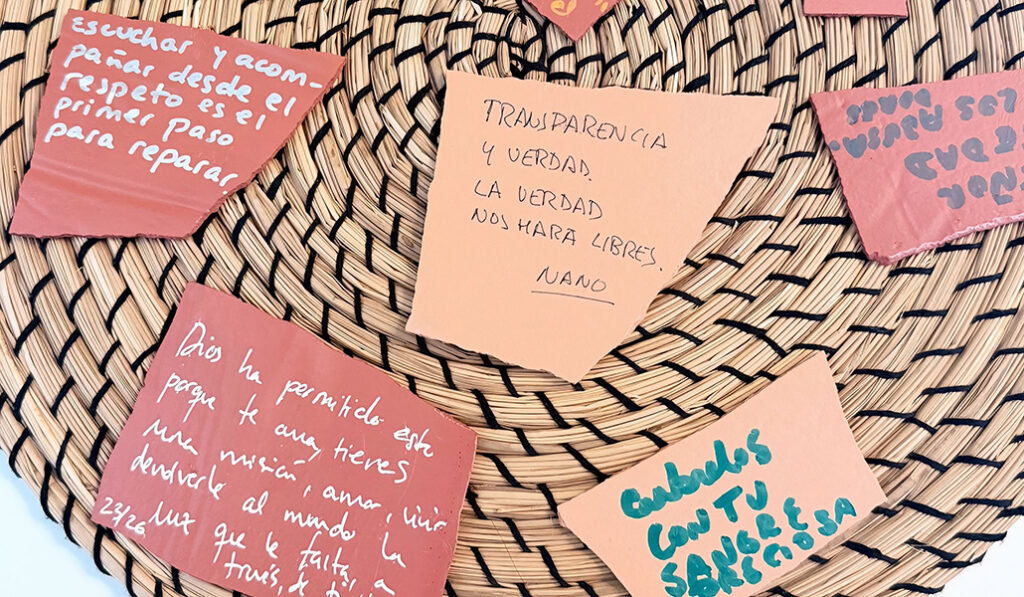 escuchar y acom-
pañar desde el
respeto es el
primer paso
para reparar.
TRANSPARENCIA
Y VERDAD.
LA VERDAD
NOS HARA LIBRES.
NANO
LOS
EDAD
Dios ha permitido esto
porque te ama, tienes
una misión, amar, vivir
devolverle al mundo la
luz que le falta, a
través, de
23/26
CON TU
SANGRE
PRECIOSA